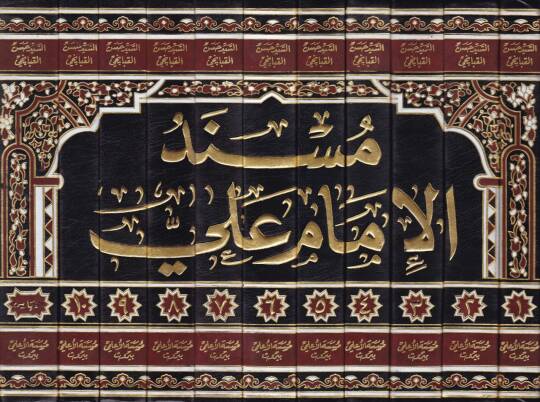 السيد حسن السيد حسن السيد حسن السيد حسن السيد حسن السيد حسن السيد حسن السيد حسن السيد حسن السيد حسن السيد حسن
القبانجي القبانجي القبانجي القبانجي القبانجي القبانجي القبانجي القبانجي القبانجي القبانجي القبانجي
مُسْنَدُ
الإِمَامِ عَلِيّ
١ ٢ ٣ ٤ ٥ ٦ ٧ ٨ ٩ ١٠
مؤسسة الأعلمي مؤسسة الأعلمي مؤسسة الأعلمي مؤسسة الأعلمي مؤسسة الأعلمي مؤسسة الأعلمي مؤسسة الأعلمي مؤسسة الأعلمي مؤسسة الأعلمي مؤسسة الأعلمي مؤسسة الأعلمي
بيروت بيروت بيروت بيروت بيروت بيروت بيروت بيروت بيروت بيروت بيروت